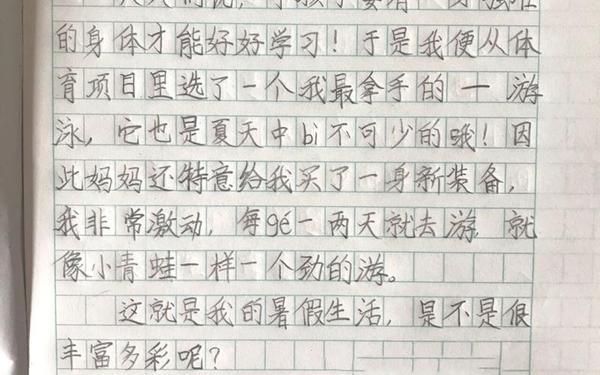 的身体才能好好学习！于是我便从体
育项目里选了一个我最拿手的一游
泳，它也是夏天中bì不可少的哦！因
此妈妈还特意给我买了一身新装备，
我非常激动，每gé一两天就去游，就
像小青蛙一样一个劲的游。
这就是我的暑假生活，是不是很
丰富多彩呢？